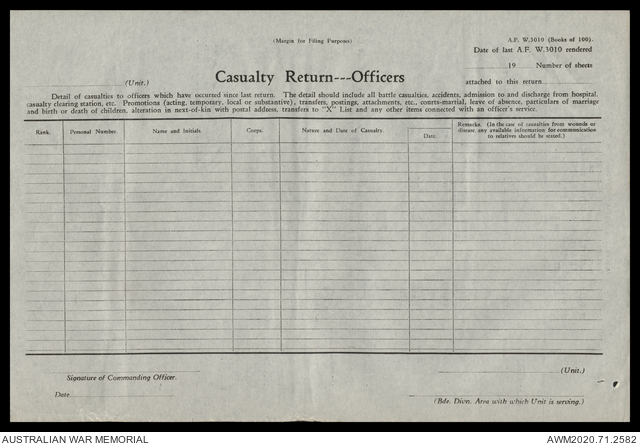 (Margin for Filing Purposes)
A.F. W.3010 (Books of 100).
Date of last A.F. W.3010 rendered
19 Number of sheets
(Unit.) Casualty Return---Officers attached to this return
Detail of casualties to officers which have occurred since last return. The detail should include all battle casualties, accidents, admission to and discharge from hospital,
casualty clearing station, etc. Promotions (acting, temporary, local or substantive), transfers, postings, attachments, etc., courts-martial, leave of absence, particulars of marriage
and birth or death of children, alteration in next-of-kin with postal address, transfers to "X" List and any other items connected with an officer's service.
Rank. Personal Number. Name and Initials. Corps. Nature and Date of Casualty. Date.
Remarks. (In the case of casualties from wounds or
disease any available information for communication
to relatives should be stated.)
Signature of Commanding Officer.
(Unit.)
Date
(Bde. Divn. Area with which Unit is serving.)
AUSTRALIAN WAR MEMORIAL
AWM2020.71.2582